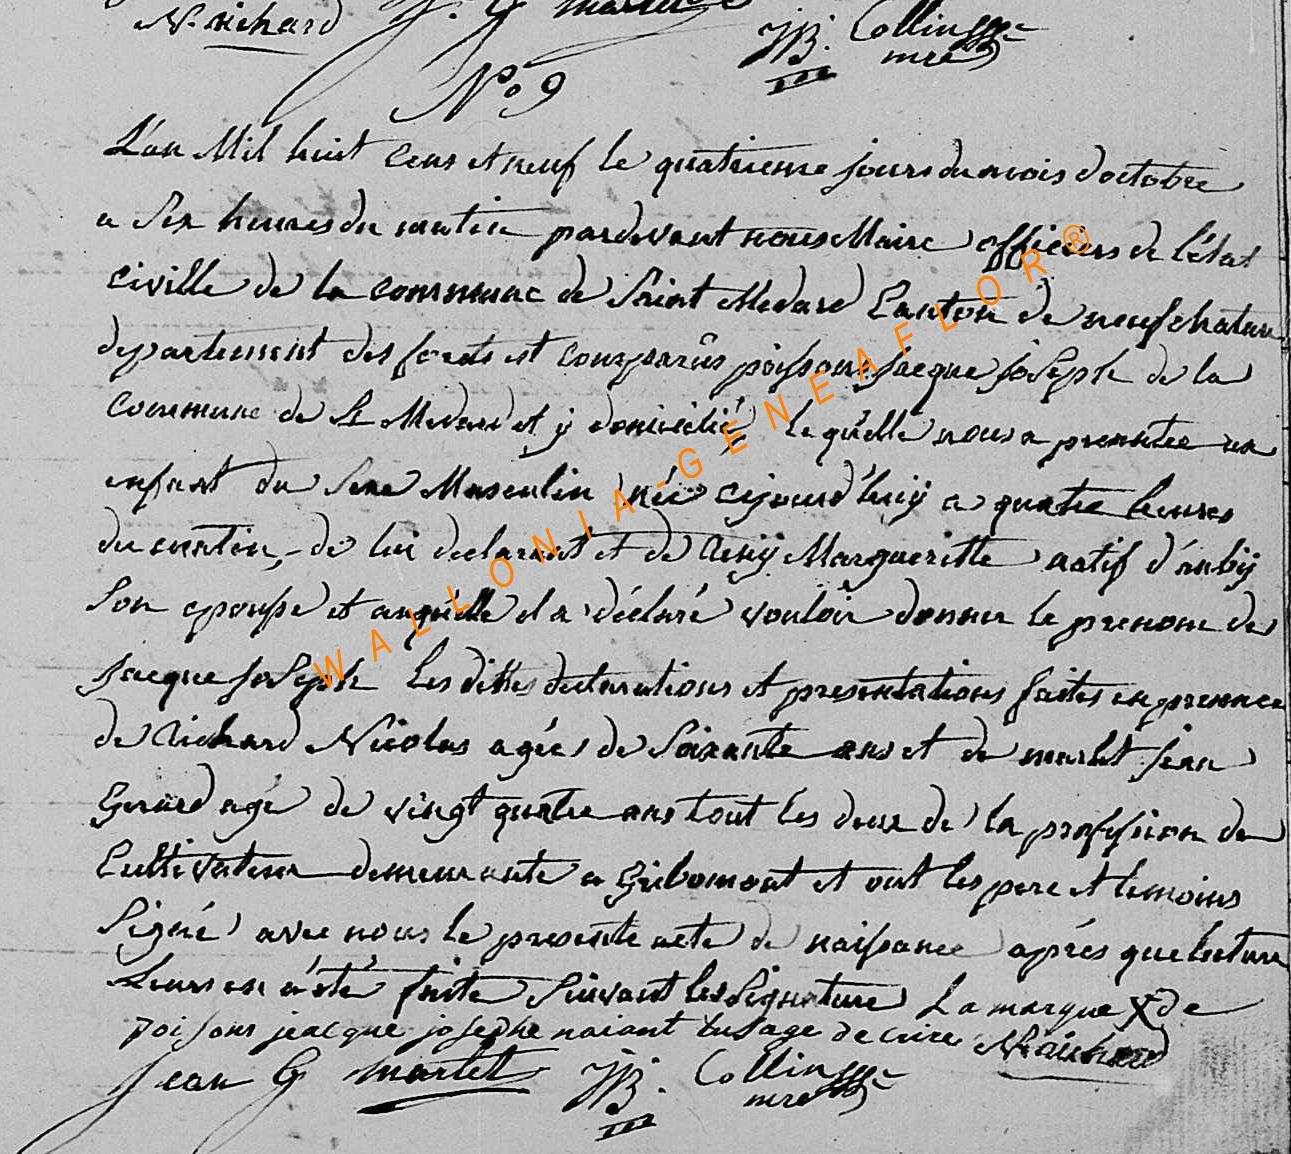 N. richard J. G martlet JB. Collin
mre
No 9
L'an Mil huit cens et neuf le quatrieme jours du mois d'octobre
a Six heures du matin pardevant nous Maire officiers de l'état
civille de la commune de Saint Medard Canton de neufchateau
departement des forets est comparûs poissons Jacque joseph de la
Commune de St Medard et y domicilié lequélle nous a presentée un
enfant du Sexe Masculin née cejourd'huij a quatre heures
du matin, de lui declarant et de Margueritte natif d'
Son epousse et auquélle il a déclaré vouloir donner le prenom de
Jacque Joseph Les dittes declarations et presentations faites en presence
de Richard Nicolas agées de Soixante ans et de martlet jean
Gerard agé de vingt quatre ans tout les deux de la profession de
Cultivateur demeurante a Gribomont et ont les pere et temoins
Signé avec nous le presente acte de naissance aprés que lecture
Leurs en a été faite Suivant les Signature La marque X de
poisons jeacque josephe naiant lusage decrire N. richard
Jean G martlet JB. Collin
mre
WALLONIA-GENEAFLOR®